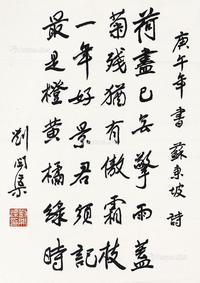 庚午年書蘇東坡詩
荷盡已無擎雨蓋
菊残猶有傲霜枝
一年好景君須記
最是橙黄橘綠時
劉開渠